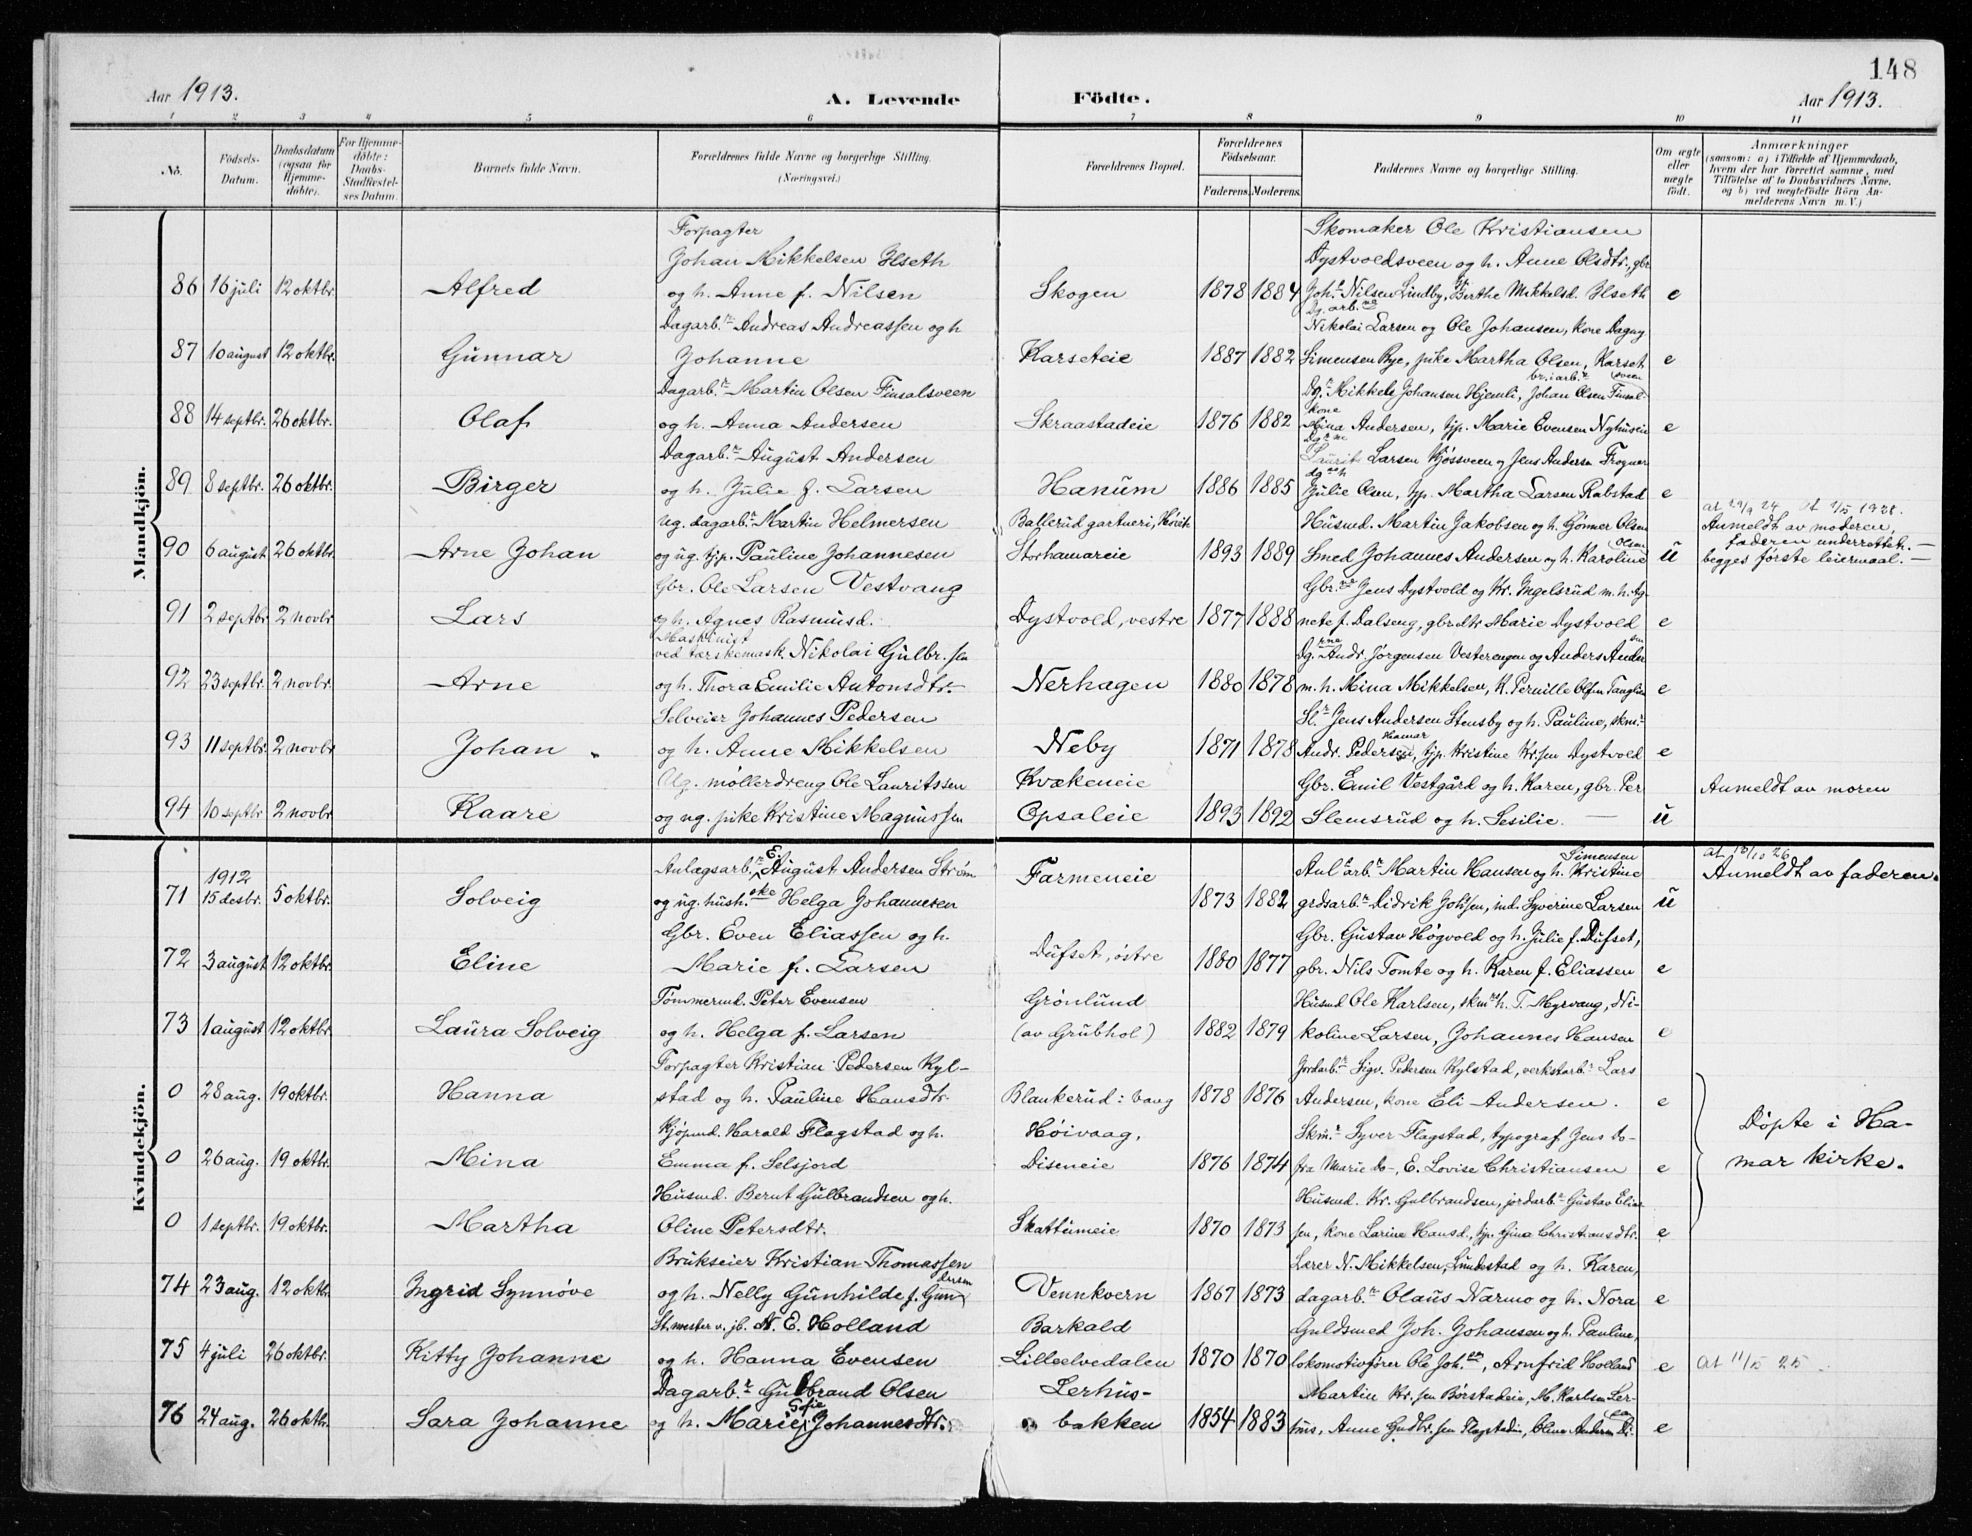 148
Aar 1913.
A. Levende
Födte.
Aar 1913.
1 2 3 4 5 6 7 8 9 10 11
No.
Födsels-Datum.
Daabsdatum (ogsaa for Hjemmedöbte).
For Hjemmedöbte: Daabs-Stadfæstelses Datum.
Barnets fulde Navn.
Forældrenes fulde Navne og borgerlige Stilling.
(Næringsvei.)
Forældrenes Bopæl.
Forældrenes Födselsaar.
Faderens. Moderens.
Faddernes Navne og borgerlige Stilling.
Om ægte eller uægte født.
Anmærkninger
(saasom: a) i Tilfælde af Hjemmedaab, hvem der har forrettet samme, med Tilföielse af to Daabsvidners Navne, og b) ved uægtefödte Börn Anmelderens Navn m. V.)
Mandkjön.
Forpagter
Johan Mikkelsen Ilseth
Skomaker Ole Kristiansen
Dystvoldsveen og h. Anne Olsdtr., gbr.
86 16 juli 12 oktbr. Alfred og h. Anne f. Nilsen Skogen 1878 1884 Joh. Nilsen Lindby, Berthe Mikkelsd. Ilseth e
Dagarb. Andreas Andreassen og h
Nikolai Larsen og Ole Johansen, kone Dagny
87 10 august 12 oktbr. Gunnar Johanne Karseteie 1887 1882 Simensen Bye, pike Martha Olsen, Karset e
Dagarb. Martin Olsen Finsalsveen
Dg. Mikkel Johansen Hjemli, Johan Olsen
88 14 septbr. 26 oktbr. Olaf og h. Anna Andersen Skraastadeie 1876 1882 kone Mina Andersen, tjp. Marie Evensen e
Dagarb. August Andersen
Larsen Kjøsveen og Jens Andersen Frogner
89 8 septbr. 26 oktbr. Birger og h. Julie f. Larsen Hanum 1886 1885 Julie Olsen, tjp. Martha Larsen Rabstad e
Ug. dagarb. Martin Helmersen
Ballerud gartneri,
Husmd. Martin Jakobsen og h. Gønner Olsen
Anmeldt av moderen,
90 6 august 26 oktbr. Arne Johan og ug. tjp. Pauline Johannesen Storhamareie 1893 1889 Smed Johannes Andersen og h. Karoline Olsen u faderen underrettet. —
begges første leiermaal. —
Gbr. Ole Larsen Vestvang
Gbr. Jens Dystvold og Kr. Ingelsrud m. h. Ag-
91 2 septbr 2 novbr Lars og h. Agnes Rasmusd. Dystvold, vestre 1877 1888 nete f. Dalseng, gbr.dtr. Marie Dystvold e
Maskinist
ved tærskemask. Nikolai Gulbr.sen
Dg. Andr. Jørgensen Vesterengen og Anders Andersen
92 23 septbr. 2 novbr. Arne og h. Thora Emilie Antonsdtr. Nerhagen 1880 1878 m. h. Mina Mikkelsen, K. Pernille Olsen e
Selveier Johannes Pedersen
Sl. Jens Andersen Stensby og h. Pauline, skm.
93 11 septbr. 2 novbr Johan og h. Anne Mikkelsen Neby 1871 1878 Andr. Pedersen, Hamar, tjp. Kristine Kr.sen Dystvold e
Ug. møllerdreng Ole Lauritssen
Kvækeneie
Gbr. Emil Vestgård og h. Karen, gbr. Per
Anmeldt av moren
94 10 septbr 2 novbr Kaare og ug. pike Kristine Magnussen Opsaleie 1893 1892 Slemsrud og h. Sesilie. — u
Kvindekjön.
Anlægsarb. E. August Andersen Strøm
Farmeneie
Anl. arb. Martin Hansen og h. Kristine Simensen
Anmeldt av faderen.
1912
71 15 desbr. 5 oktbr. Solveig og ug. hush. Helga Johannesen 1873 1882 grdsarb. Didrik Johsen, ind. Syverine Larsen u
Gbr. Even Eliassen og h.
Gbr. Gustav Høgvold og h. Julie f. Dufset,
72 3 august 12 oktbr. Eline Marie f. Larsen Dufset, østre 1880 1877 gbr. Nils Tomte og h. Karen f. Eliassen e
Tømmermd. Peter Evensen
Grønlund
Husmd Ole Karlsen, skm. h. T. Myrvang, Ni-
73 1 august 12 oktbr. Laura Solveig og h. Helga f. Larsen (av Grubhol) 1882 1879 koline Larsen, Johannes Hansen e
Forpagter Kristian Pedersen Kyl-
Jordarb. Sigv. Pedersen Kylstad, verkstarb. Lars
0 28 aug. 19 oktbr. Hanna stad og h. Pauline Hansdtr. Blankerud: Vang 1878 1876 Andersen, kone Eli Andersen. e
Døpte i Ha-
mar kirke.
Kjøpmd. Harald Flagstad og h.
Høivaag,
Skm. Syver Flagstad, typograf Jens do-
0 26 aug. 19 oktbr. Mina Emma f. Selsjord Diseneie 1876 1874 fra Marie do-, E. Lovise Christiansen e
Husmd. Bernt Gulbrandsen og h.
Husmd. Kr. Gulbrandsen, jordarb. Gustav Elias-
0 1 septbr. 19 oktbr. Martha Oline Petersdtr. Skattumeie 1870 1873 sen, kone Larine Hansd., tjp. Gina Christiansdtr. e
Brukseier Kristian Thomassen
Lærer N. Mikkelsen, Lundestad og h. Karen,
74 23 aug. 12 oktbr. Ingrid Synnøve og h. Nelly Gunhilde f. Gundersen Vennkvern 1867 1873 dagarb. Olaus Narmo og h. Nora e
St.mester v. jb. N. E. Holland
Barkald
Guldsmed Joh. Johansen og h. Pauline,
75 4 juli 26 oktbr. Kitty Johanne og h. Hanna Evensen Lilleelvedalen 1870 1870 lokomotivfører Ole Joh.sen, Arnfrid Holland e at 11/5 25
Dagarb. Gulbrand Olsen
Lerhus-
Martin Kr.sen Børstadeie, M. Karlsen Ler-
76 24 aug. 26 oktbr. Sara Johanne og h. Marie Sofie Johannesdtr. bakken 1854 1883 hus, Anne Gudbr.sen Flagstadeie, Oline Andersen e